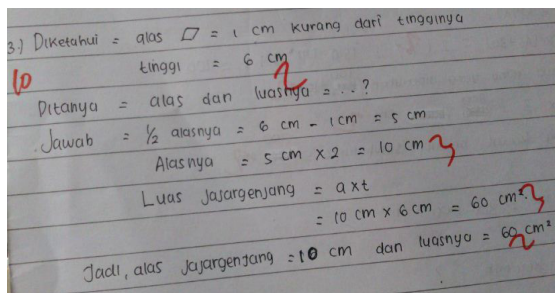 3.) Diketahui = alas ▱ = 1 cm kurang dari tingginya
10
tinggi = 6 cm
Ditanya = alas dan luasnya = ...?
Jawab = ½ alasnya = 6 cm - 1 cm = 5 cm
Alasnya = 5 cm x 2 = 10 cm
Luas Jajargenjang = a x t
= 10 cm x 6 cm = 60 cm².
Jadi, alas Jajargenjang = 10 cm dan luasnya = 60 cm²